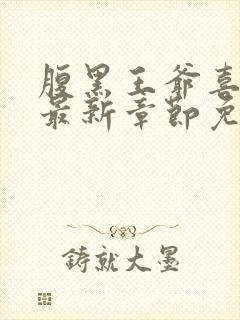 腹黑王爷喜
最新章节免
铸就大墨